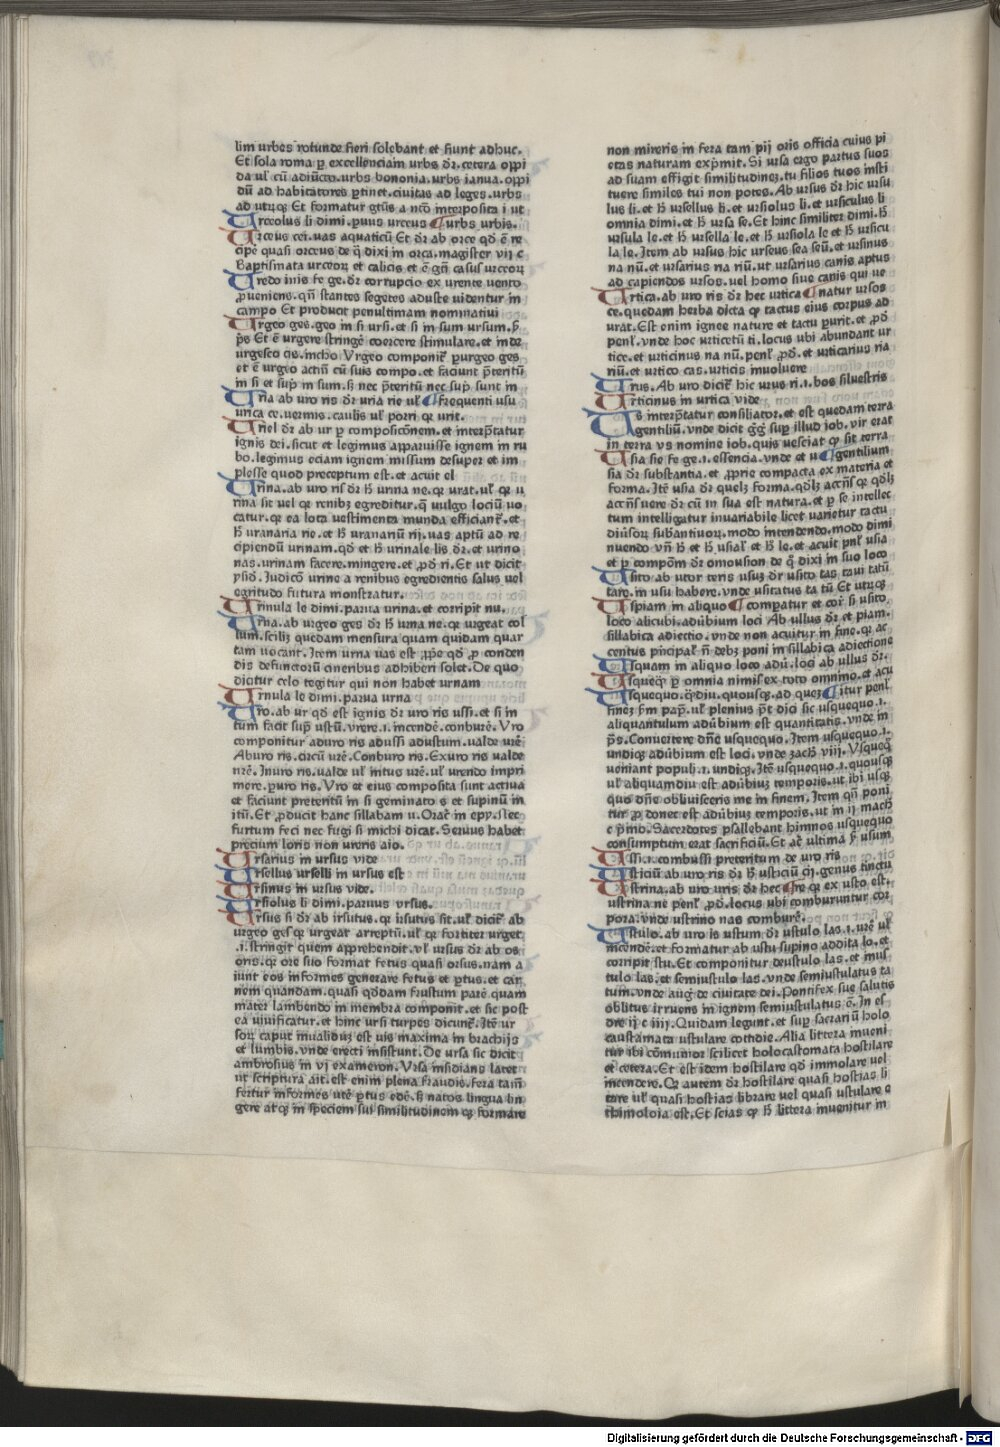 lim urbes rotunde fieri solebant et fiunt adhuc.
Et sola roma ꝑ excellenciam urbs dr̄. cetera oppi
da ul̓ cū adiūcto. urbs bononia. urbs ianua. oppi
dū ad habitatores ꝑtinet. ciuitas ad leges. urbs
ad utrūqꝫ Et formatur
Urceolus li dimi. ꝑuus urceus urbs urbis.
Urceus cei. uas aquaticū Et dr̄ ab orce qđ ē re
cipe quasi orceus de q̄ dixi in orca. magister vij c̄
Baptismata urceoꝝ et calicis et ē gn̄ casus urceoꝝ
Uredo inis fe ge. dr̄ corrupcio ex urente uento
ꝓueniens. qn̄ stantes segetes aduste uidentur in
campo Et producit penultimam nominatiui
Urgeo ges. geo in si ursi. et si in sum ursum. ꝓ̄
p̄s Et ē urgere stringē coercere stimulare. et inde
urgesco cis. incho Vrgeo componit̄ ꝑurgeo ges
et ē urgeo actiū cū suis compo. et faciunt p̄teritū
in si et sup̄ in sum. sꝫ nec p̄teritū nec sup̄ sunt in
Uria ab uro ris dr̄ uria rie ul̓ frequenti usu
urica ce. vermis. caulis ul̓ porri qꝛ urit.
Uriel dr̄ ab ur ꝑ composicōnem. et interp̄tatur
ignis dei. sicut et legimus apparuisse ignem in ru
bo. legimus eciam ignem missum desuper et im
plesse quod preceptum est. et acuit el
Urina. ab uro ris dr̄ hꝫ urina ne. qꝛ urat. ul̓ qꝛ u
rina sit uel qꝛ renibꝫ egreditur. q̄ uulgo lociū uo
catur. qꝛ ea lota uestimenta munda efficiant̄. et
hꝫ uranaria rie. et hꝫ uranariū rij. uas aptū ad re
cipiendū urinam. qđ et hꝫ urinale lis dr̄. et urino
nas. urinam facere. mingere. et ꝓđ ri. Et ut dicit
ysiđ. Judicōꝫ urine a renibus egredientis salus uel
egritudo futura monstratur.
Urinula le dimi. parua urina. et corripit nu.
Urna. ab urgeo ges dr̄ hꝫ urna ne. qꝛ urgeat col
lum. scilicꝫ quedam mensura quam quidam quar
tam uocant. Item urna uas est ꝓp̄e qđ ꝑ conden
dis defunctoꝝ cineribus adhiberi solet. De quo
dicitur celo tegitur qui non habet urnam
Urnula le dimi. parua urna
Uro. ab ur qđ est ignis dr̄ uro ris ussi. et si in
tum facit sup̄ ustū. vrere .i. incendē. conburē. Vro
componitur aduro ris adussi adustum. ualde urē
Aburo ris. circū urē. Conburo ris. Exuro ris ualde
urē. Inuro ris. ualde ul̓ intus urē. ul̓ urendo impri
mere. ꝑuro ris. Vro et eius composita sunt actiua
et faciunt preteritū in si geminato s et supinū in
itū. Et ꝓducit hanc sillabam u. Orac̄ in epy. Nec
furtum feci nec fugi si michi dicat. Seruus habet
precium loris non ureris aio.
Ursarius in ursus vide
Ursellus urselli in ursus est
Ursinus in ursus vide.
Ursiolus li dimi. paruus vrsus.
Ursus si dr̄ ab irsutus. qꝛ irsutus sit. ul̓ dicit̄ ab
urgeo ges qꝛ urgeat arreptū. ul̓ qꝛ fortiter urget
.i. stringit quem apprehendit. vl̓ ursus dr̄ ab os
oris. qꝛ ore suo format fetus quasi orsus. nam a
iunt eos informes generare fetus et ꝑtus. et car
nem quandam. quasi qđdam frustum parē. quam
mater lambendo in membra componit. et sic post
ea viuificatur. et hinc ursi turpes dicunt̄. Itē ur
soꝝ caput inualidū est uis maxima in brachijs
et lumbis. vnde erecti insistunt. De ursa sic dicit
ambrosius in vj exameron. Vrsa insidians latet
ut scriptura ait. est enim plena fraudis. fera tam̄
fertur informes utē ꝑtus edē. sꝫ natos lingua lin
gere atqꝫ in speciem sui similitudinem qꝫ formare
non mireris in fera tam pij oris officia cuius pi
etas naturam exp̄mit. Si ursa ergo partus suos
ad suam effigit similitudinez. tu filios tuos insti
tuere similes tui non potes. Ab ursus dr̄ hic ursu
lus li. et hꝫ ursellus li. et ursiolus li. et ursiculus li
omnia dimi. et hꝫ ursa se. Et hinc similiter dimi. hꝫ
ursula le. et hꝫ ursella le. et hꝫ ursiola le et hꝫ ursicu
la le. Item ab ursus hic urseus sea seū. et ursinus
na nū. et ursarius na riū. ut ursarius canis aptus
ad capiendos ursos. vel homo siue canis qui ue
Urtica. ab uro ris dr̄ hec urtica natur ursos
ce. quedam herba dicta qꝫ tactus eius corpus ad
urat. Est enim ignee nature et tactu ꝑurit. et ꝓđ
penl̓. vnde hoc urticetū ti. locus ubi abundant ur
tice. et urticinus na nū. penl̓ ꝓđ. et urticarius ria
riū. et urtico cas. urticis inuoluere
Urus. Ab uro dicit̄ hic urus ri .i. bos siluestris
Urticinus in urtica vide
Us interp̄tatur consiliator. et est quedam terra
gentiliū. vnde dicit gg̓ sup̄ illud iob. vir erat
in terra vs nomine iob. quis nesciat qꝫ sit terra
Usia sie fe ge .i. essencia. vnde et u gentilium
sia dr̄ substantia. et ꝓprie compacta ex materia et
forma. Itē usia dr̄ quelꝫ forma. qđlꝫ accn̄s qꝛ qđlꝫ
accn̄s uere dr̄ cū in sua est natura. et ꝑ se intellec
tum intelligatur inuariabile licet uarietur tactu
diūsoꝝ subantiuoꝝ. modo intendendo. modo dimi
nuendo vn̄ hꝫ et hꝫ usial̓ et hꝫ le. et acuit pnl̓ usia
et ꝑ compōm dr̄ omousion de q̄ dixi in suo loco
Usito ab utor teris usus dr̄ usito tas taui tatū
tare. in usu habere. vnde usitatus ta tū Et utrūqꝫ
Uspiam in aliquo compatur et cor̄ si usito.
loco alicubi. adūbium loci Ab ullus dr̄ et piam.
sillabica adiectio. vnde non acuitur in fine. qꝛ ac
centus pincipal̓ n̄ debꝫ poni in sillabica adiectione
Usquam in aliquo loco adū. loci ab ullus dr̄.
Usqueqꝫ ꝑ omnia nimis ex toto omnino. et acu
Usquequo. qdiu. quousqꝫ. ad quez itur penl̓
finez f̄m pap̄. ul̓ plenius p̄t dici sic usquequo .i.
aliquantulum adūbium est quantitatis. vnde in
p̄s. Conuertere dn̄e usquequo. Item usquequo .i.
undiqꝫ adūbium est loci. vnde zach̄ viij. Vsqueqꝫ
ueniant populi .i. undiqꝫ. Itē usquequo .i. quousqꝫ
ul̓ aliquamdiu est adūbiuz temporis. ut ibi usqꝫ
quo dn̄e obliuisceris me in finem. Item qn̄ poni
tur ꝓ donec est adūbiuz temporis. ut in ij mach̄
c̄ p̄mo. Sacerdotes psallebant himnos usquequo
consumptum erat sacrificiū. Et ac̄ ultima ꝑ̄ usum
Ussi .i. combussi preteritum de uro ris
Usticiū ab uro ris dr̄ hꝫ usticiū cij. genus tinctu
Ustrina. ab uro uris dr̄ hec re qꝛ ex usto est.
ustrina ne penl̓ ꝓđ. locus ubi comburuntur cor
pora. vnde ustrino nas comburē.
Ustulo. ab uro is ustum dr̄ ustulo las .i. urē ul̓
incendē. et formatur ab ustu supino addita lo. et
corripit stu. Et componitur deustulo las. et inus
tulo las. et semiustulo las. vnde semiustulatus ta
tum. vnde aug̓ de ciuitate dei. Pontifex sue salutis
oblitus irruens in ignem semiustulatus ē. In es
dre ij c̄ iiij. Quidam legunt. et sup̄ sacrariū holo
caustamata ustulare cottidie. Alia littera inueni
tur ibi cōmunior scilicet holocastomata hostilare
et cetera. Et est idem hostilare qđ immolare vel
incendere. Qꝛ autem dr̄ hostilare quasi hostias li
tare ul̓ quasi hostias librare vel quasi ustulare e
thimoloia est. Et scias qꝫ hꝫ littera inuenitur in
Digitalisierung gefördert durch die Deutsche Forschungsgemeinschaft - DFG